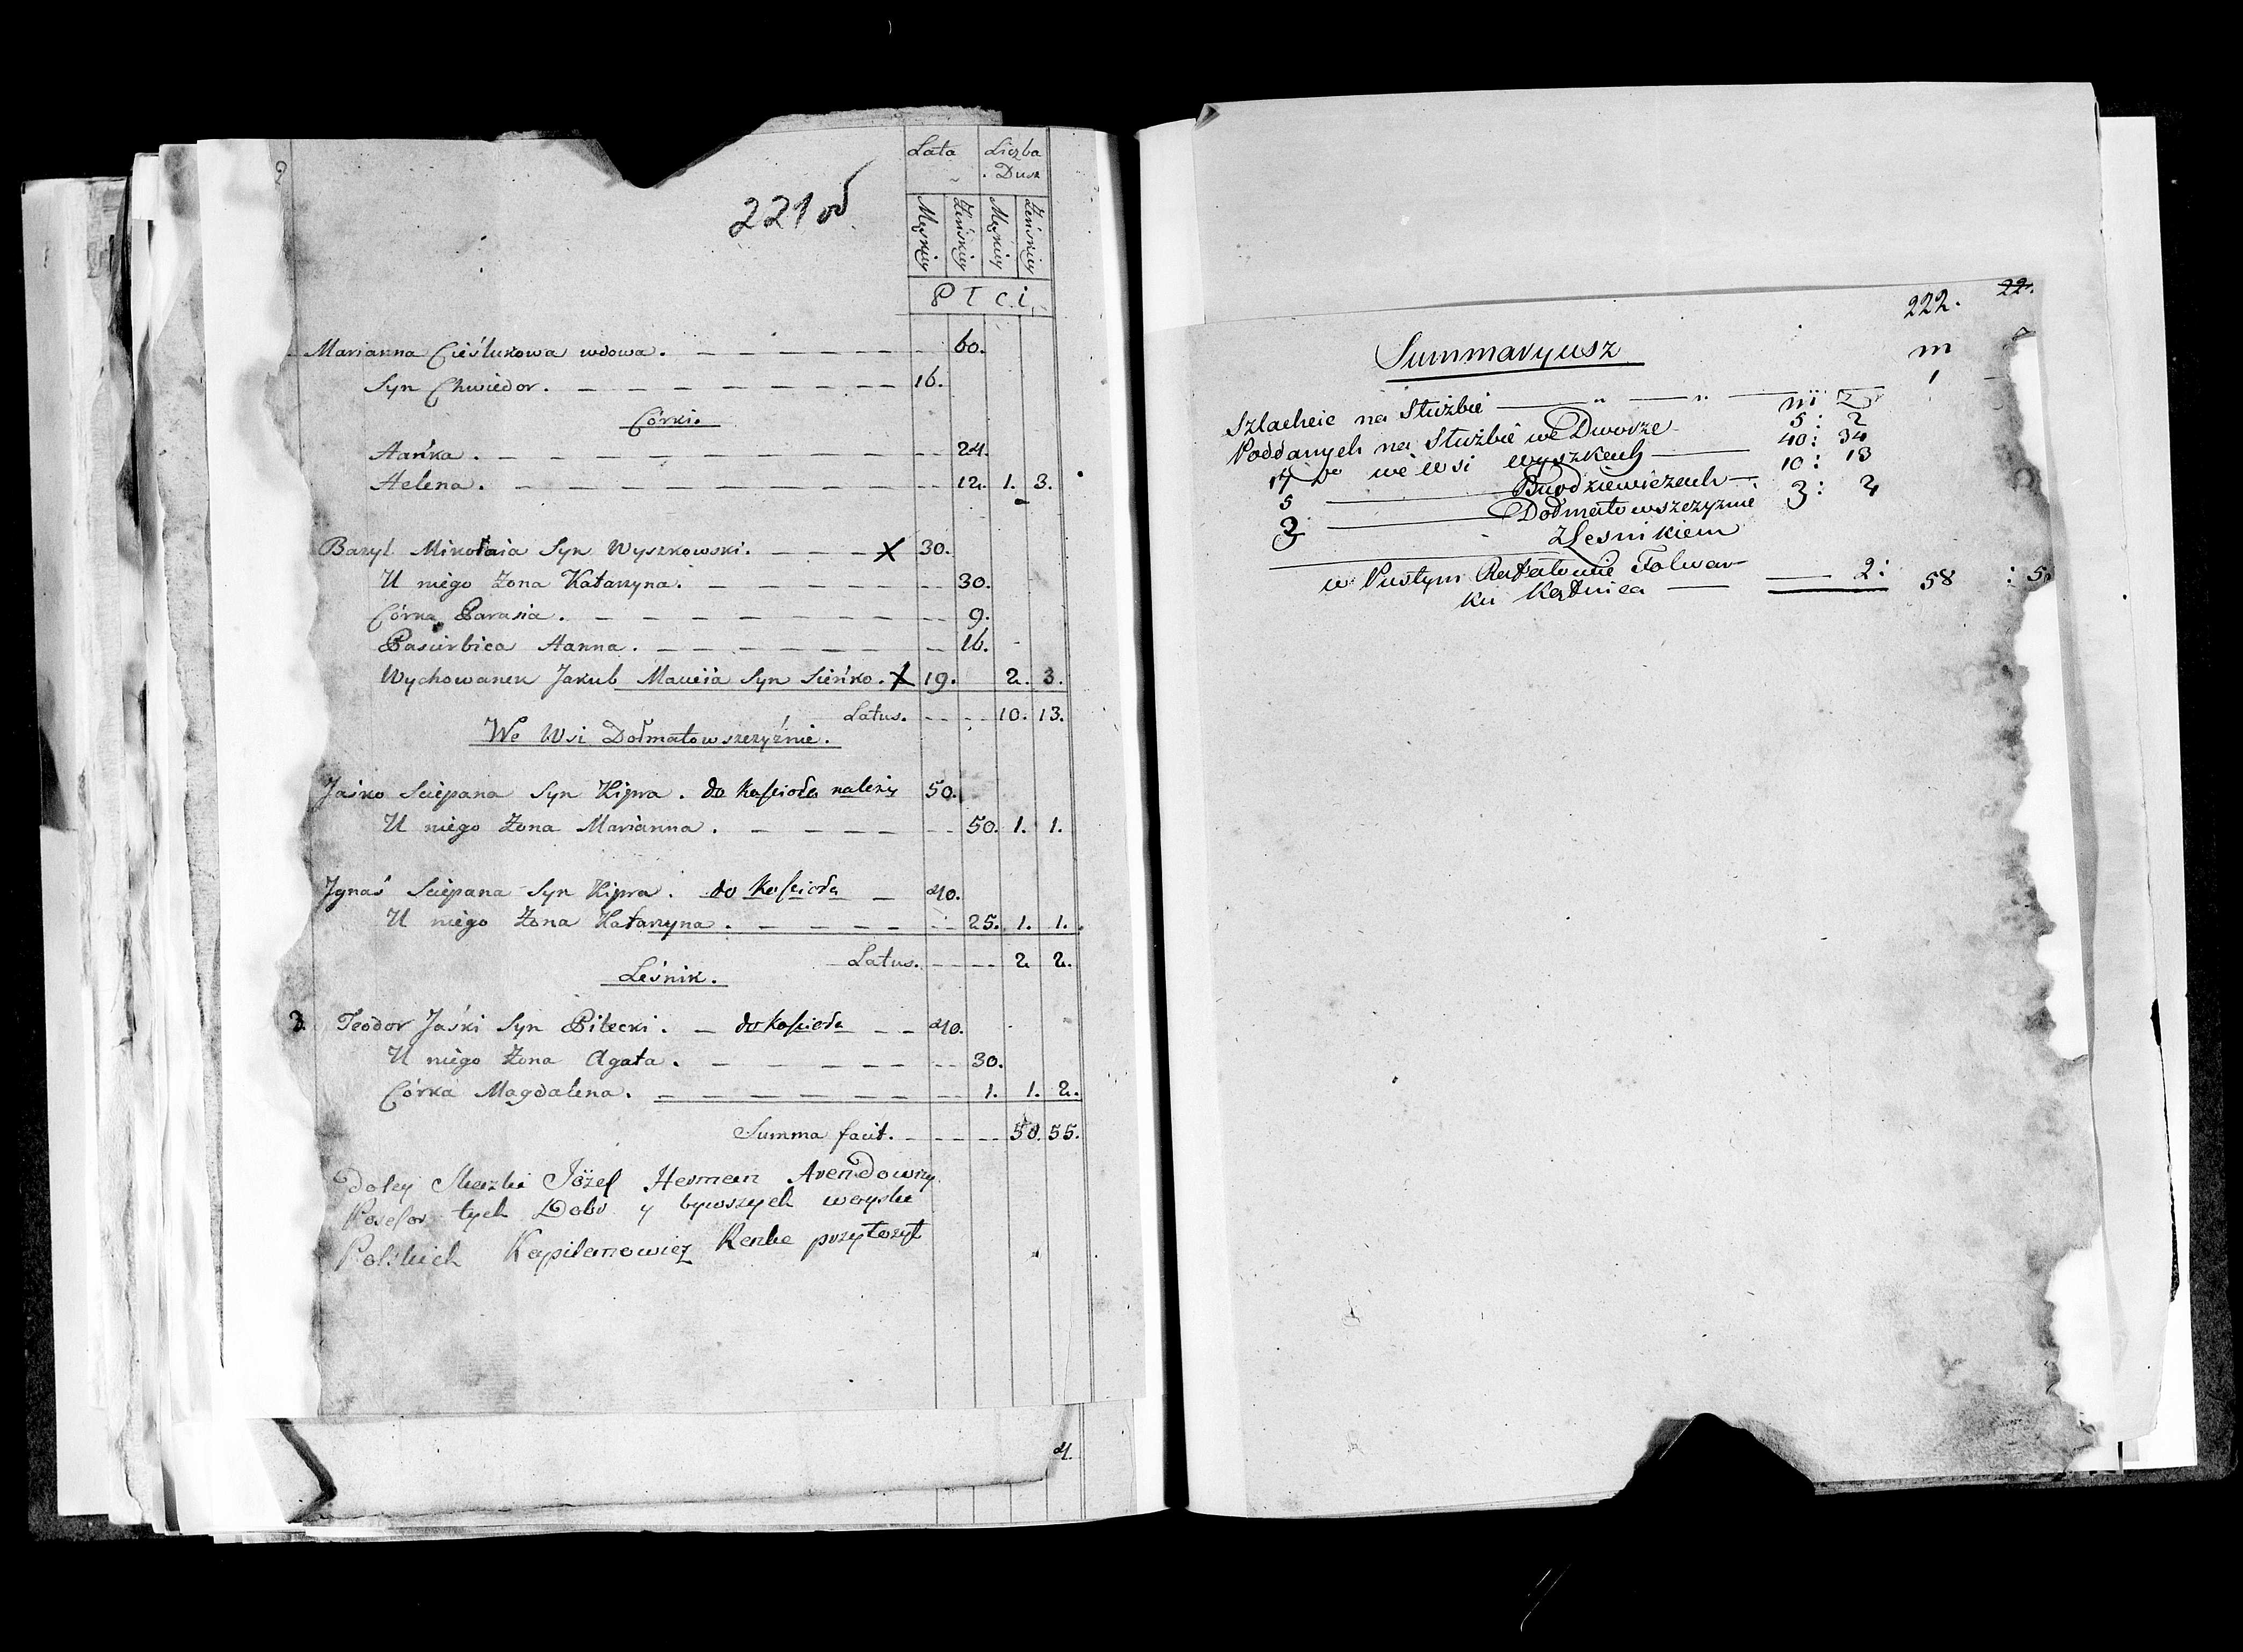 221 об
Lata Liczba
Dusz
Męskiey Żeńskiey Męskiey Żeńskiey
P T C i
Marianna Cieślukowa wdowa. 60.
Syn Chwiedor. 16.
Córki.
Hańka. 24.
Helena. 12. 1. 3.
Bazyl Mikołaia Syn Wyszkowski. X 30.
U niego Żona Katarzyna. 30.
Córka Parasia. 9.
Pasierbica Hanna. 16.
Wychowanek Jakub Macieia Syn Sieńko. X 19. 2. 3.
Latus. 10. 13.
We Wsi Dołmatowszczyźnie.
Jaśko Sciepana Syn Kipra. do Kościoła należy 50.
U niego Żona Marianna. 50. 1. 1.
Jgnaś Sciepana Syn Kipra. do Kościoła 40.
U niego Żona Katarzyna. 25. 1. 1.
Latus. 2. 2.
Leśnik.
3. Teodor Jaśki Syn Pilecki. do Kościoła 40.
U niego Żona Agata. 30.
Córka Magdalena. 1. 1. 2.
Summa facit. 58. 55.
Do tey Skazki Józef Herman Arendowny
Posesor tych Dobr y bywszych woysk
Polskich Kapitanowicz Renke przyłożył
4.
222. 22.
Summaryusz
m
Szlachcic na Służbie 1
m Ż
Poddanych na Służbie we Dworze 5: 2
17 do we Wsi Wyszkach 40: 34
5 Burdziewiczach 10: 13
3 Dołmatowszczyznie 3: 4
z Lesnikiem
w Pustym Folwar-
ku 2: 58 : 5